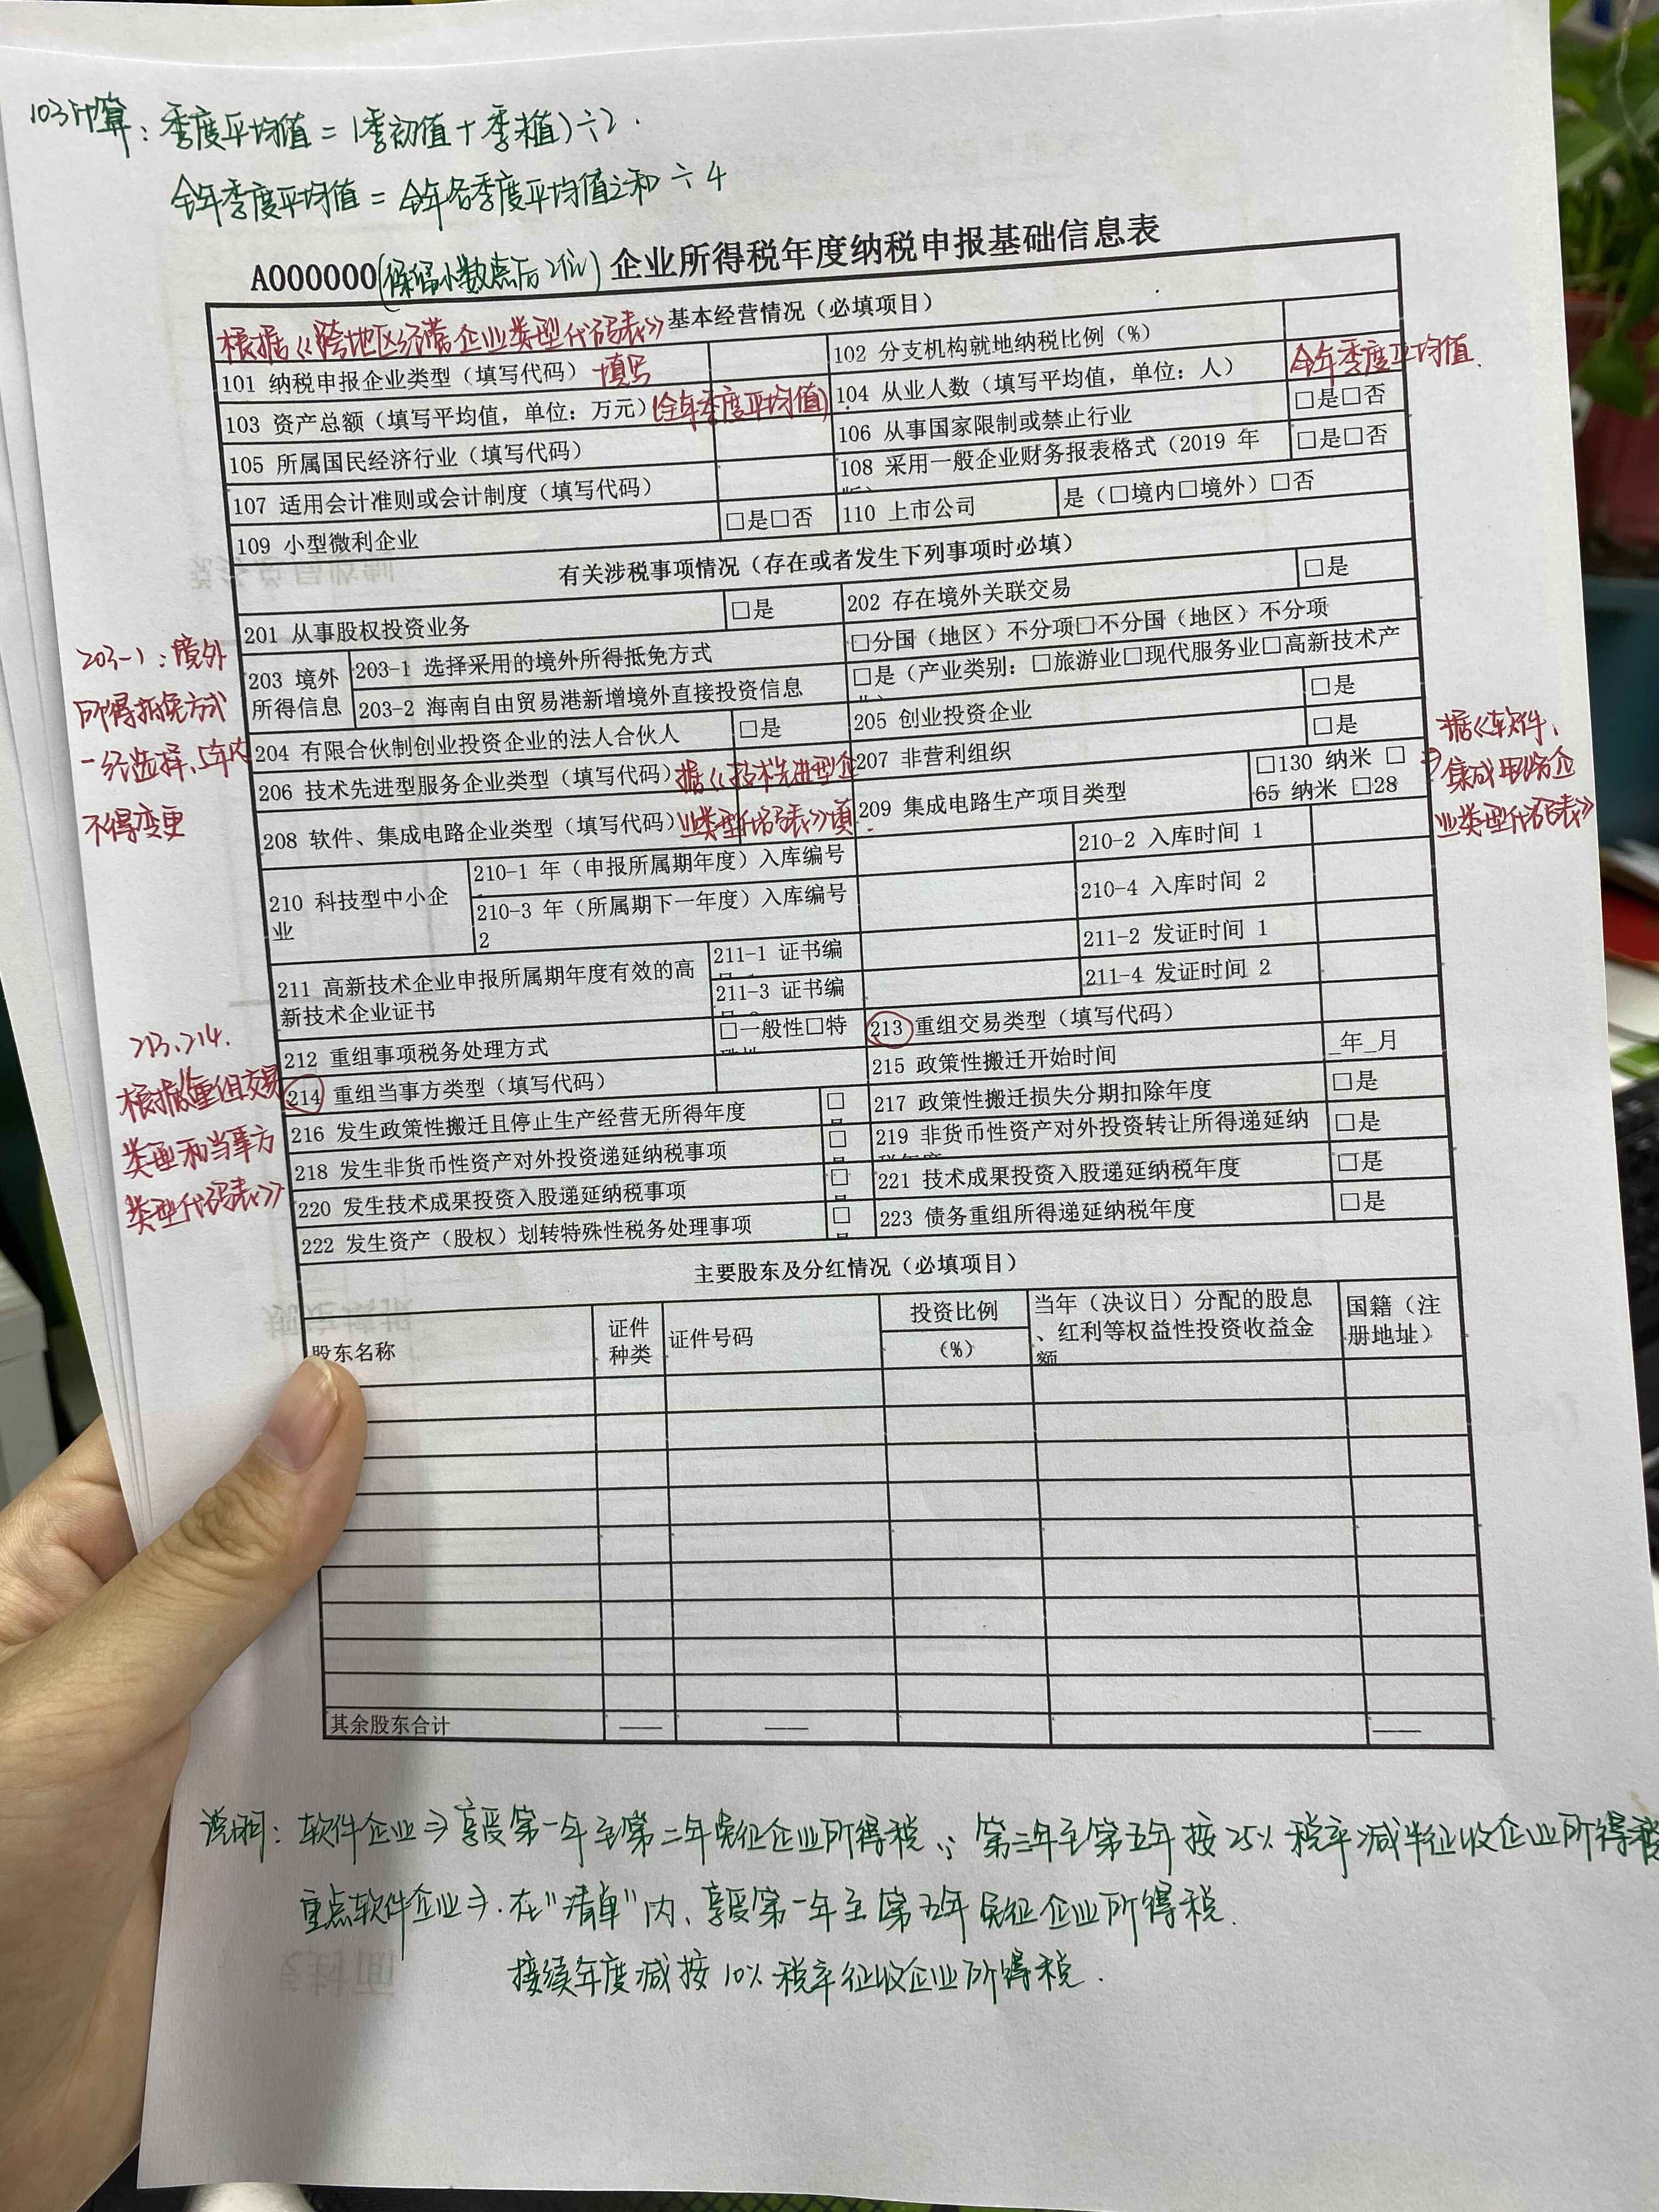 103计算：季度平均值=(季初值+季末值)÷2.
全年季度平均值=全年各季度平均值之和÷4
A000000(保留小数点后2位)企业所得税年度纳税申报基础信息表
基本经营情况（必填项目）
根据《跨地区经营企业类型代码表》
101 纳税申报企业类型（填写代码） 填写
102 分支机构就地纳税比例（%）
103 资产总额（填写平均值，单位：万元）(全年季度平均值).
104 从业人数（填写平均值，单位：人）
全年季度平均值.
105 所属国民经济行业（填写代码）
106 从事国家限制或禁止行业
□是□否
107 适用会计准则或会计制度（填写代码）
108 采用一般企业财务报表格式（2019 年
□是□否
109 小型微利企业
□是□否
110 上市公司
是（□境内□境外）□否
有关涉税事项情况（存在或者发生下列事项时必填）
201 从事股权投资业务
□是
202 存在境外关联交易
□是
203 境外
所得信息
203-1 选择采用的境外所得抵免方式
□分国（地区）不分项□不分国（地区）不分项
203-2 海南自由贸易港新增境外直接投资信息
□是（产业类别：□旅游业□现代服务业□高新技术产
203-1：境外
所得抵免方式
一经选择、5年内
不得变更
204 有限合伙制创业投资企业的法人合伙人
□是
205 创业投资企业
□是
206 技术先进型服务企业类型（填写代码）
据《技术先进型企
业类型代码表》填.
207 非营利组织
□是
208 软件、集成电路企业类型（填写代码）
209 集成电路生产项目类型
□130 纳米 □
65 纳米 □28
据《软件、
集成电路企
业类型代码表》
210 科技型中小企
业
210-1 年（申报所属期年度）入库编号
210-2 入库时间 1
210-3 年（所属期下一年度）入库编号
2
210-4 入库时间 2
211 高新技术企业申报所属期年度有效的高
新技术企业证书
211-1 证书编
211-2 发证时间 1
211-3 证书编
211-4 发证时间 2
212 重组事项税务处理方式
□一般性□特
213 重组交易类型（填写代码）
214 重组当事方类型（填写代码）
215 政策性搬迁开始时间
_年_月
213、214.
根据《重组交易
类型和当事方
类型代码表》
216 发生政策性搬迁且停止生产经营无所得年度
□
217 政策性搬迁损失分期扣除年度
□是
218 发生非货币性资产对外投资递延纳税事项
□
219 非货币性资产对外投资转让所得递延纳
□是
220 发生技术成果投资入股递延纳税事项
□
221 技术成果投资入股递延纳税年度
□是
222 发生资产（股权）划转特殊性税务处理事项
□
223 债务重组所得递延纳税年度
□是
主要股东及分红情况（必填项目）
股东名称
证件
种类
证件号码
投资比例
（%）
当年（决议日）分配的股息
、红利等权益性投资收益金
额
国籍（注
册地址）
其余股东合计
——
——
——
说明：软件企业⇒享受第一年至第二年免征企业所得税；第三年至第五年按25%税率减半征收企业所得税
重点软件企业⇒.在"清单"内、享受第一年至第五年免征企业所得税.
接续年度减按10%税率征收企业所得税.